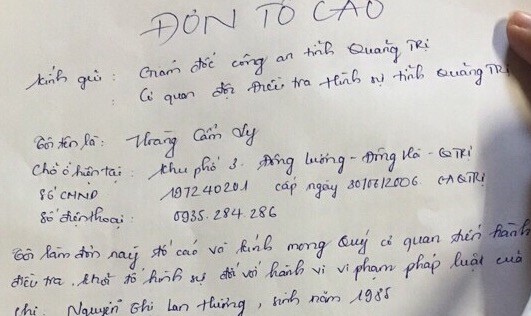 ĐƠN TỐ CÁO
Kính gửi : Giám đốc công an tỉnh Quảng Trị
: Cơ quan đội Điều tra Hình sự tỉnh Quảng Trị
Tôi tên là : Hoàng Cẩm Vy
Chỗ ở hiện tại : Khu phố 3. Đông Lương - Đông Hà - QTRỊ
Số CMND 197240201 cấp ngày 30/07/2006. CAQTRỊ
Số điện thoại : 0935.284.286
Tôi làm đơn này tố cáo và kính mong Quý cơ quan tiến hành
điều tra, khởi tố hình sự đối với hành vi vi phạm pháp luật của
chị. Nguyễn Thị Lan Hương, sinh năm 1985